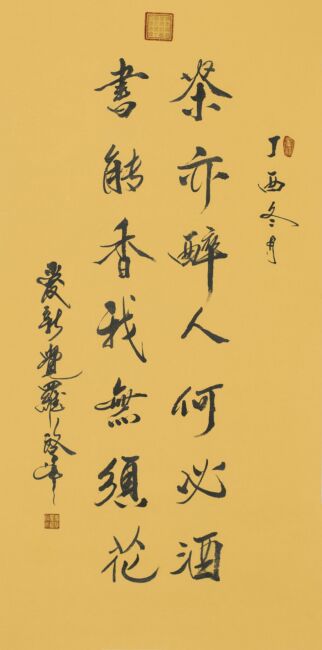 丁酉冬月
茶亦醉人何必酒
書能香我無須花
愛新覺羅啟峯